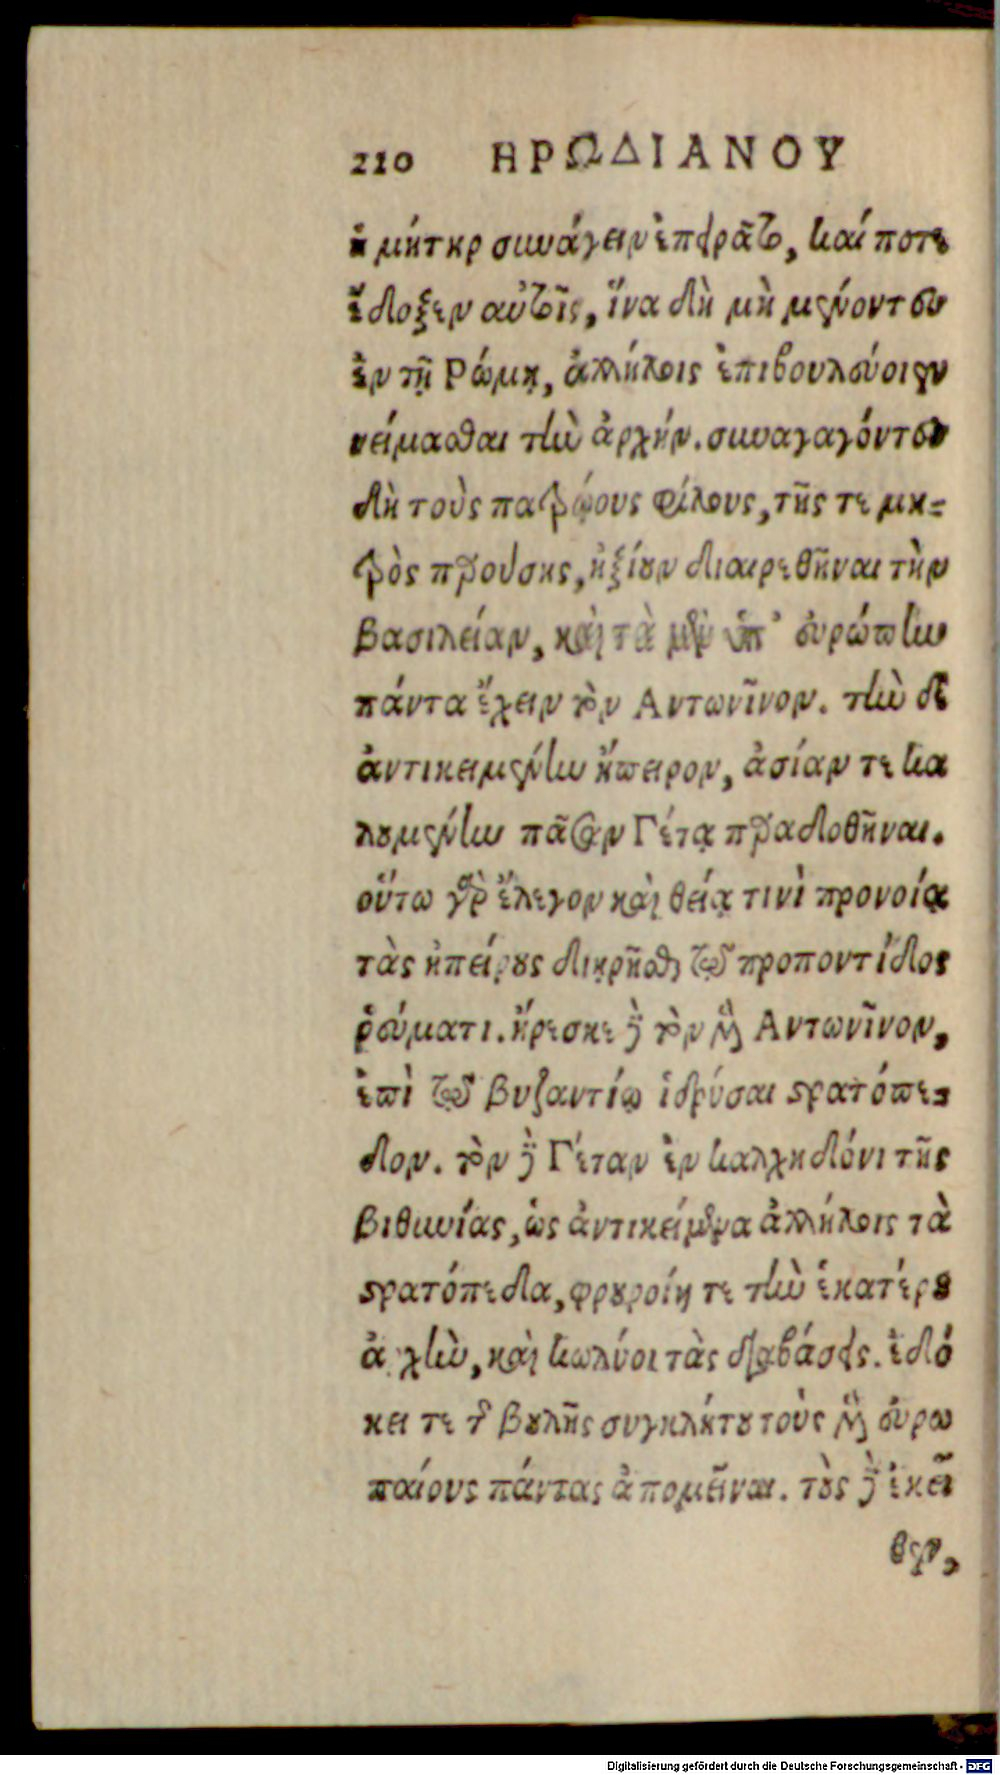 210 ΗΡΩΔΙΑΝΟΥ
ἡ μήτηρ συνάγειν ἐπειρᾶτο, καί ποτε
ἔδοξεν αὐτοῖς, ἵνα δὴ μὴ μένοντες
ἐν τῇ Ρώμῃ, ἀλλήλοις ἐπιβουλεύοιεν
νείμασθαι τὴν ἀρχήν. συναγαγόντες
δὴ τοὺς πατρῴους φίλους, τῆς τε μη-
τρὸς παρούσης, ἠξίουν διαιρεθῆναι τὴν
βασιλείαν, καὶ τὰ μὲν ὑπ' εὐρώπην
πάντα ἔχειν τὸν Αντωνῖνον. τὴν δὲ
ἀντικειμένην ἤπειρον, ἀσίαν τε κα
λουμένην πᾶσαν Γέτᾳ παραδοθῆναι.
οὕτω γὰρ ἔλεγον καὶ θείᾳ τινὶ προνοίᾳ
τὰς ἠπείρους διῃρῆσθαι τῷ προποντίδος
ῥεύματι. ἤρεσκε δὲ τὸν μὲν Αντωνῖνον,
ἐπὶ τῷ βυζαντίῳ ἱδρύσαι στρατόπε-
δον. τὸν δὲ Γέταν ἐν καλχηδόνι τῆς
βιθυνίας, ὡς ἀντικείμενα ἀλλήλοις τὰ
στρατόπεδα, φρουροίη τε τὴν ἑκατέρου
ἀρχὴν, καὶ κωλύοι τὰς διαβάσεις. ἐδό
κει τε τῆς βουλῆς συγκλήτου τοὺς μὲν εὐρω
παίους πάντας ἀπομεῖναι. τοὺς δὲ ἐκεῖ
θεν,
Digitalisierung gefördert durch die Deutsche Forschungsgemeinschaft - DFG